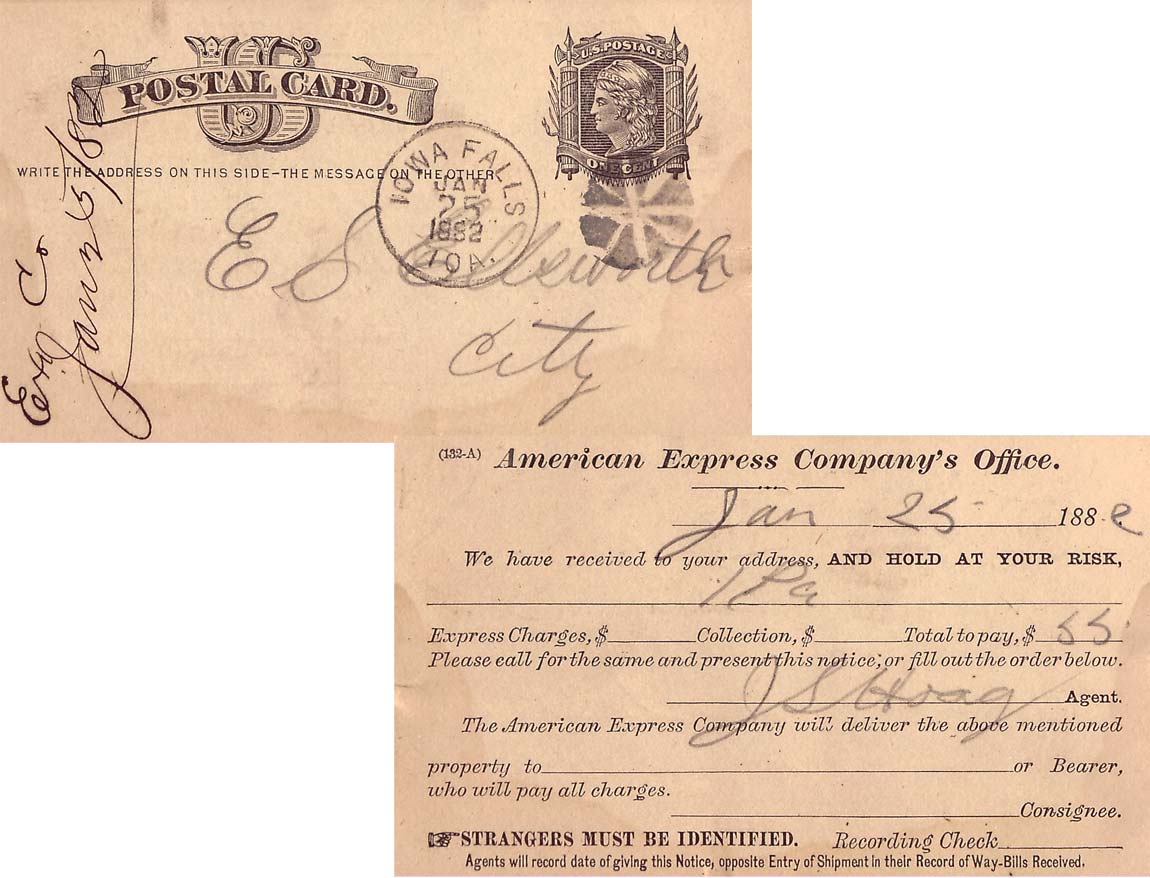 US
POSTAL CARD.
U.S. POSTAGE
ONE CENT
WRITE THE ADDRESS ON THIS SIDE-THE MESSAGE ON THE OTHER
IOWA FALLS
JAN
25
1882
IOA.
E S Ellsworth
City
Ex Co
Jan 25/82
(132-A) American Express Company's Office.
Jan 25 1882
We have received to your address, AND HOLD AT YOUR RISK,
1 Pa
Express Charges, $ Collection, $ Total to pay, $ 55
Please call for the same and present this notice, or fill out the order below.
J S Hoag Agent.
The American Express Company will deliver the above mentioned
property to or Bearer,
who will pay all charges.
Consignee.
STRANGERS MUST BE IDENTIFIED. Recording Check
Agents will record date of giving this Notice, opposite Entry of Shipment in their Record of Way-Bills Received.